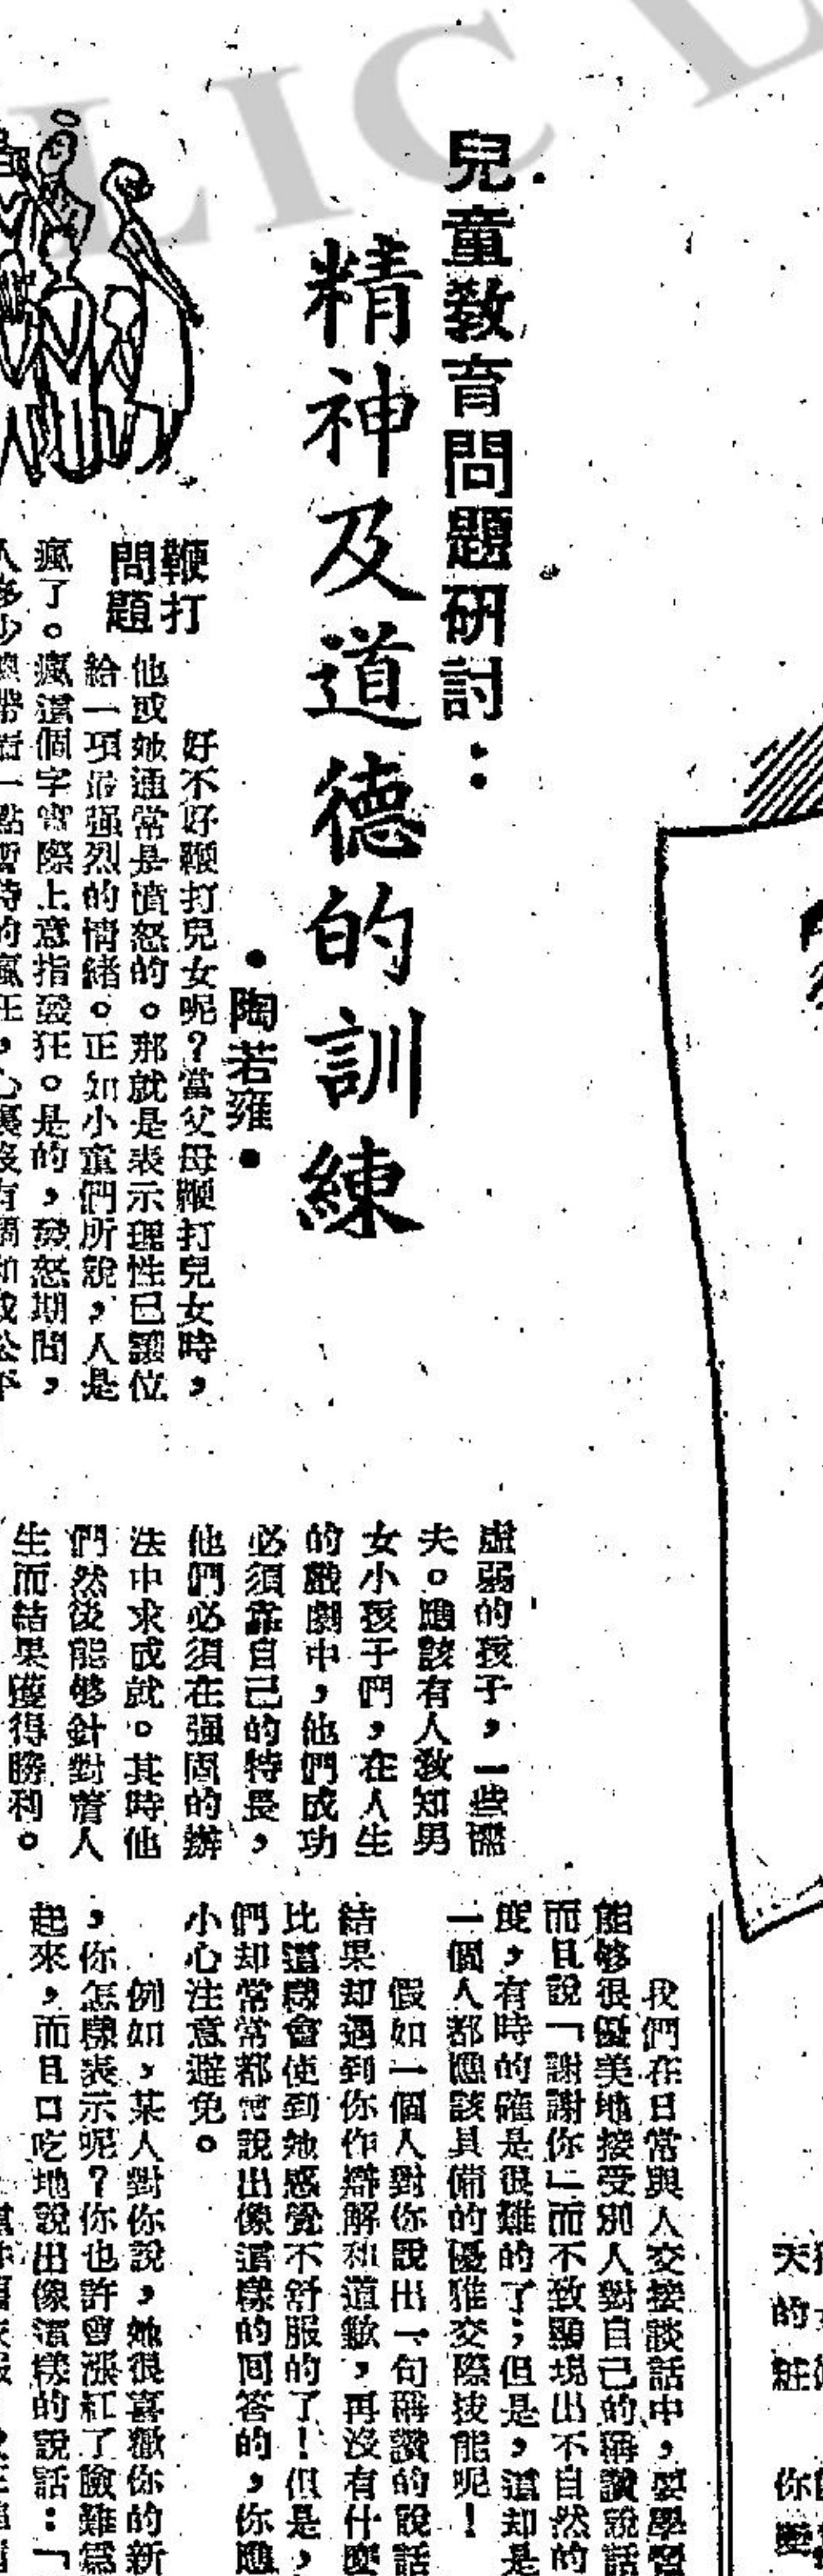 兒童教育問題研討：
精神及道德的訓練
•陶若雍•
鞭打
問題
好不好鞭打兒女呢？當父母鞭打兒女時，
他或她通常是憤怒的。那就是表示理性已讓位
給一項最强烈的情緒。正如小童們所說，人是
瘋了。瘋這個字實際上意指發狂。是的，發怒期間，
虛弱的孩子，一些懦
夫。應該有人教知男
女小孩子們，在人生
的戲劇中，他們成功
必須靠自己的特長，
他們必須在强固的辦
法中求成就。其時他
們然後能够針對着人
生而結果獲得勝利。
我們在日常與人交接談話中，要學習
能够很優美地接受別人對自己的稱讚說話
而且說「謝謝你」而不致顯現出不自然的
度，有時的確是很難的了；但是，這却是
一個人都應該具備的優雅交際技能呢！
假如一個人對你說出一句稱讚的說話
結果却遇到你作辯解和道歉，再沒有什麼
比這樣會使到她感覺不舒服的了！但是，
們却常常都會說出像這樣的回答的，你應
小心注意避免。
例如，某人對你說，她很喜歡你的新
，你怎樣表示呢？你也許會漲紅了臉難爲
起來，而且口吃地說出像這樣的說話：「
天
的
粧
你
LIC